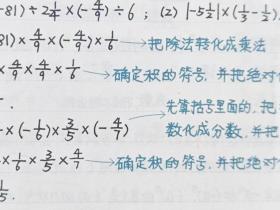 -81)÷2¼×(-4/9)÷6；(2) |-5½|×(1/3-½)
81)×4/9×(-4/9)×1/6 → 把除法转化成乘法
×4/9×4/9×1/6 → 确定积的符号，并把绝对
先算括号里面的，把
×(-1/6)×3/5×(-4/7) → 数化成分数，并把
×1/6×3/5×4/7 → 确定积的符号，并把绝对
1/5.